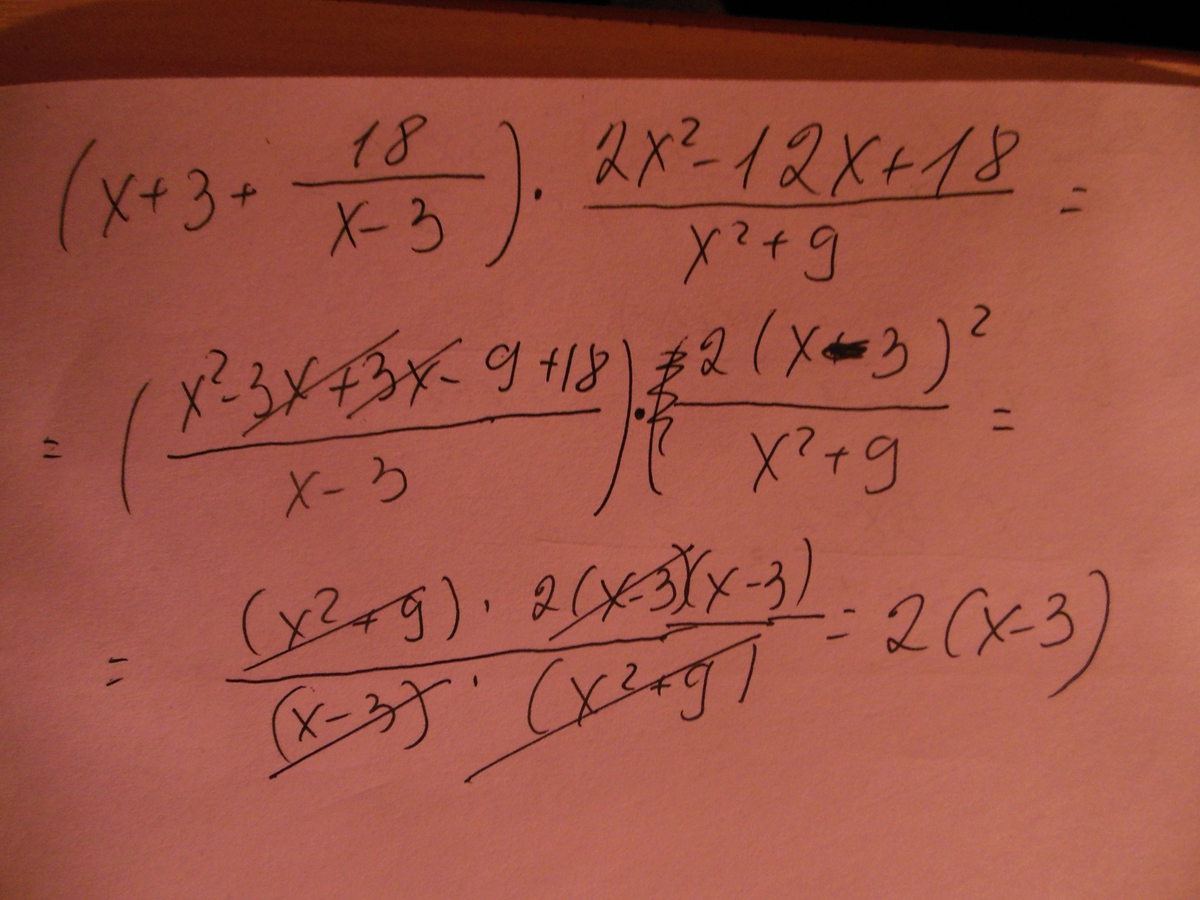 (x+3+ 18/(x-3)) · (2x²-12x+18)/(x²+9) =
= ((x²-3x+3x-9+18)/(x-3)) · (2(x-3)²)/(x²+9) =
= ((x²+9) · 2(x-3)(x-3))/((x-3) · (x²+9)) = 2(x-3)